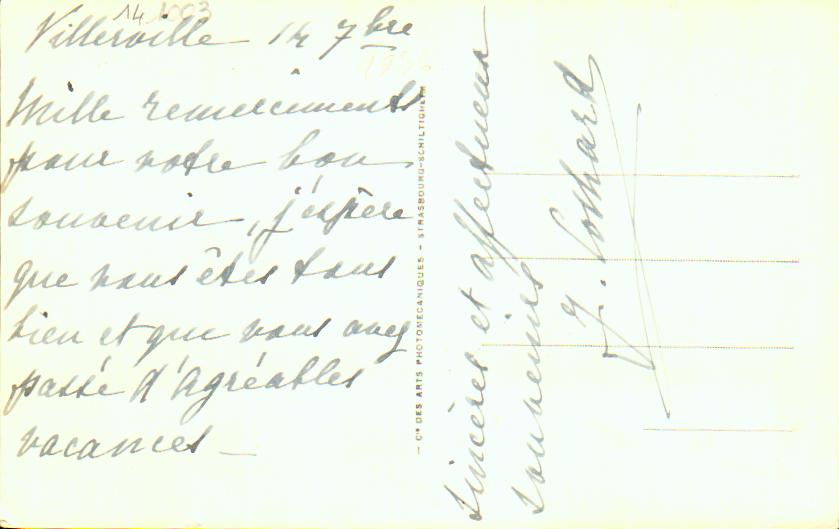 14 1003
Villerville 14 7bre
Mille remerciments
pour votre bon
souvenir, j'espère
que vous êtes tous
bien et que vous avez
passé d'agréables
vacances —
— Cie DES ARTS PHOTOMECANIQUES - STRASBOURG-SCHILTIGHEIM
sincères et affectueux
souvenirs
J.